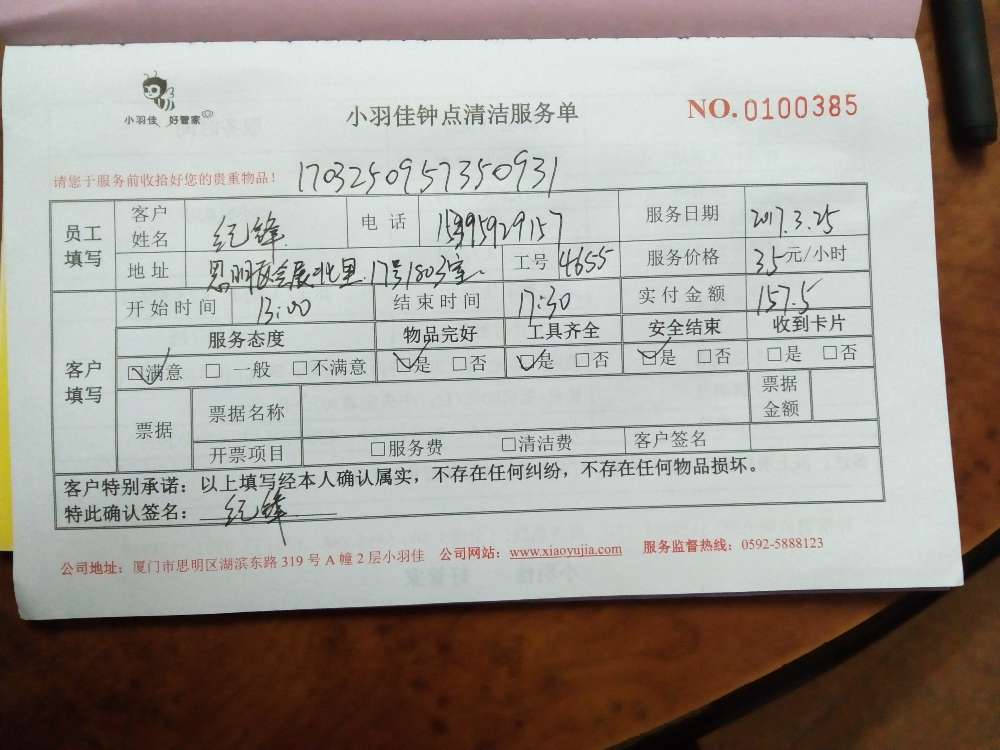 小羽佳 好管家
小羽佳钟点清洁服务单
NO.0100385
请您于服务前收拾好您的贵重物品！
1703250957350931
员工填写 客户姓名 纪锋 电话 服务日期 2017.3.25
地址 思明区会展北里17号1803室 工号 4655 服务价格 35元/小时
客户填写 开始时间 13:00 结束时间 17:30 实付金额 157.5
服务态度 物品完好 工具齐全 安全结束 收到卡片
☑满意 □一般 □不满意 ☑是 □否 ☑是 □否 ☑是 □否 □是 □否
票据 票据名称 票据金额
开票项目 □服务费 □清洁费 客户签名
客户特别承诺：以上填写经本人确认属实，不存在任何纠纷，不存在任何物品损坏。
特此确认签名：纪锋
公司地址：厦门市思明区湖滨东路 319 号 A 幢 2 层小羽佳 公司网站：www.xiaoyujia.com 服务监督热线：0592-5888123